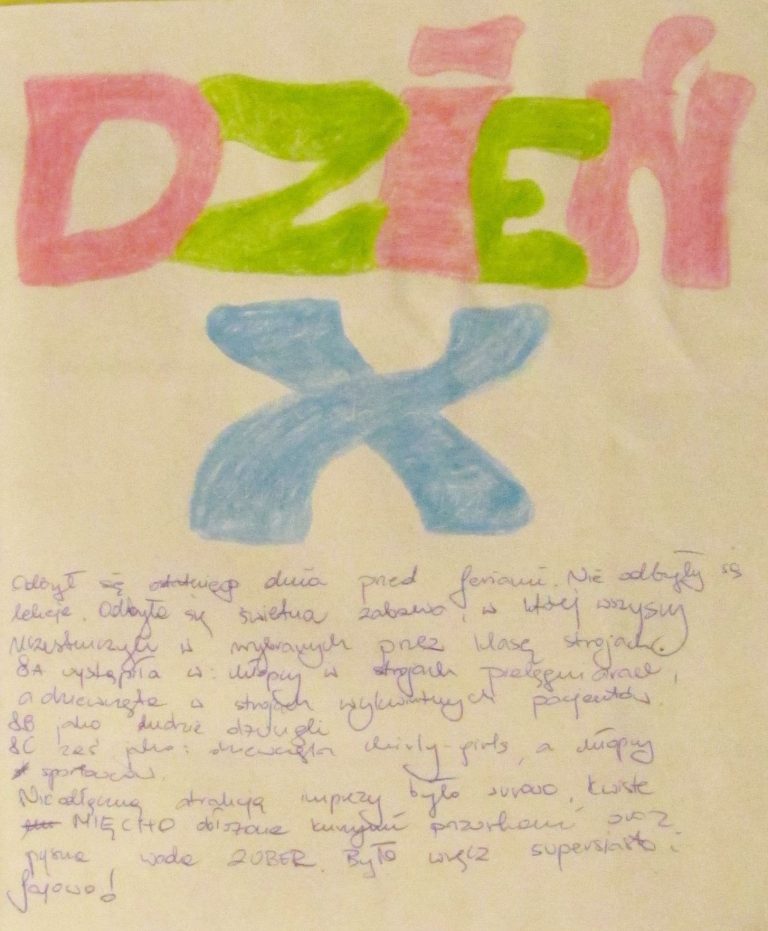 DZIEŃ
X
Odbył się ostatniego dnia przed feriami. Nie odbyły są
lekcje. Odbyła się świetna zabawa, w której wszyscy
uczestniczyli w wybranych przez klasę strojach.
8A wystąpiła w: chłopcy w strojach pielęgniarek,
a dziewczęta w strojach wykwintnych pacjentów.
8B jako ludzie dżungli
8C zaś jako: dziewczęta chirly-girls, a chłopcy
sportowców.
Nieodłączną atrakcją imprezy było surowe, kwiste
MIĘCHO oraz
pyszna woda ZUBER. Było wręcz supersiasto i
fajowo!